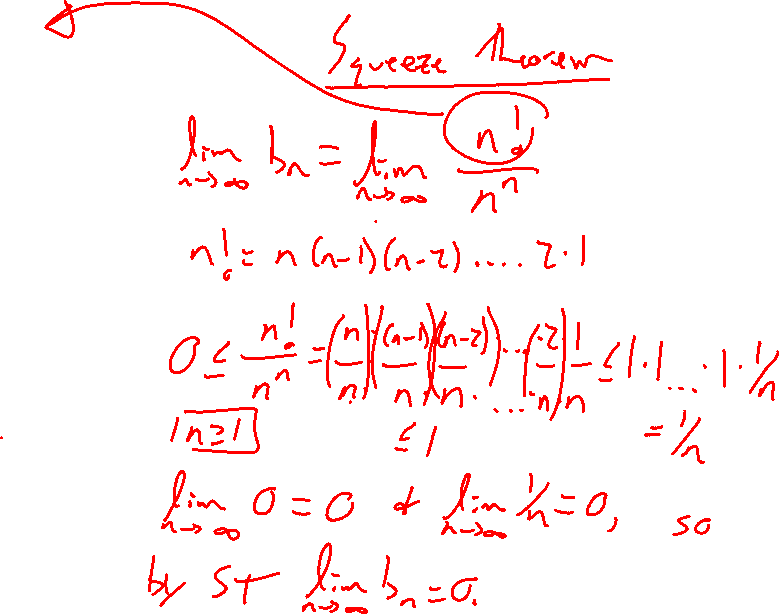 Squeeze Theorem
lim n→∞ bn = lim n→∞ n!/n^n
n! = n(n-1)(n-2)....2·1
0 ≤ n!/n^n = (n/n)((n-1)/n)((n-2)/n)...(2/n)1/n ≤ 1·1...·1·1/n
n≥1 ≤1 =1/n
lim n→∞ 0 = 0 & lim n→∞ 1/n = 0, so
by ST lim n→∞ bn = 0.